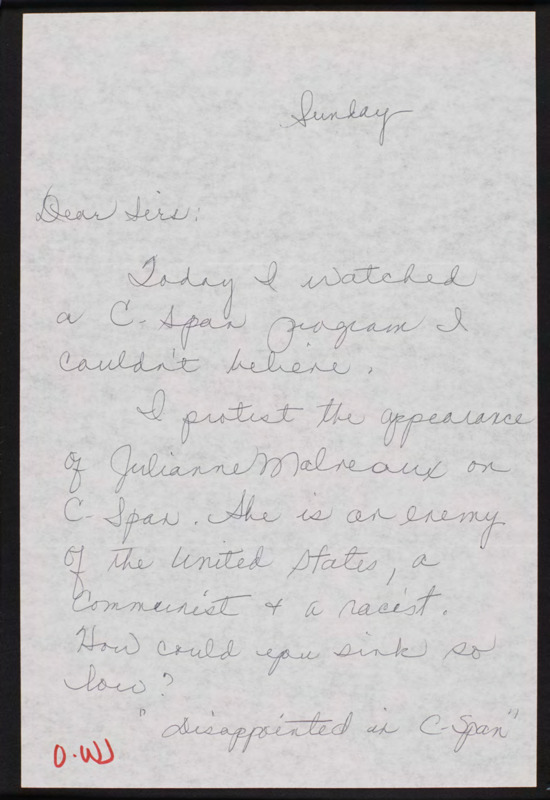 Sunday
Dear Sirs:
Today I watched
a C-Span program I
couldn't believe.
I protest the appearance
of Julianne Malveaux on
C-Span. She is an enemy
of the United States, a
Communist & a racist.
How could you sink so
low?
"Disappointed in C-Span"
O.W.